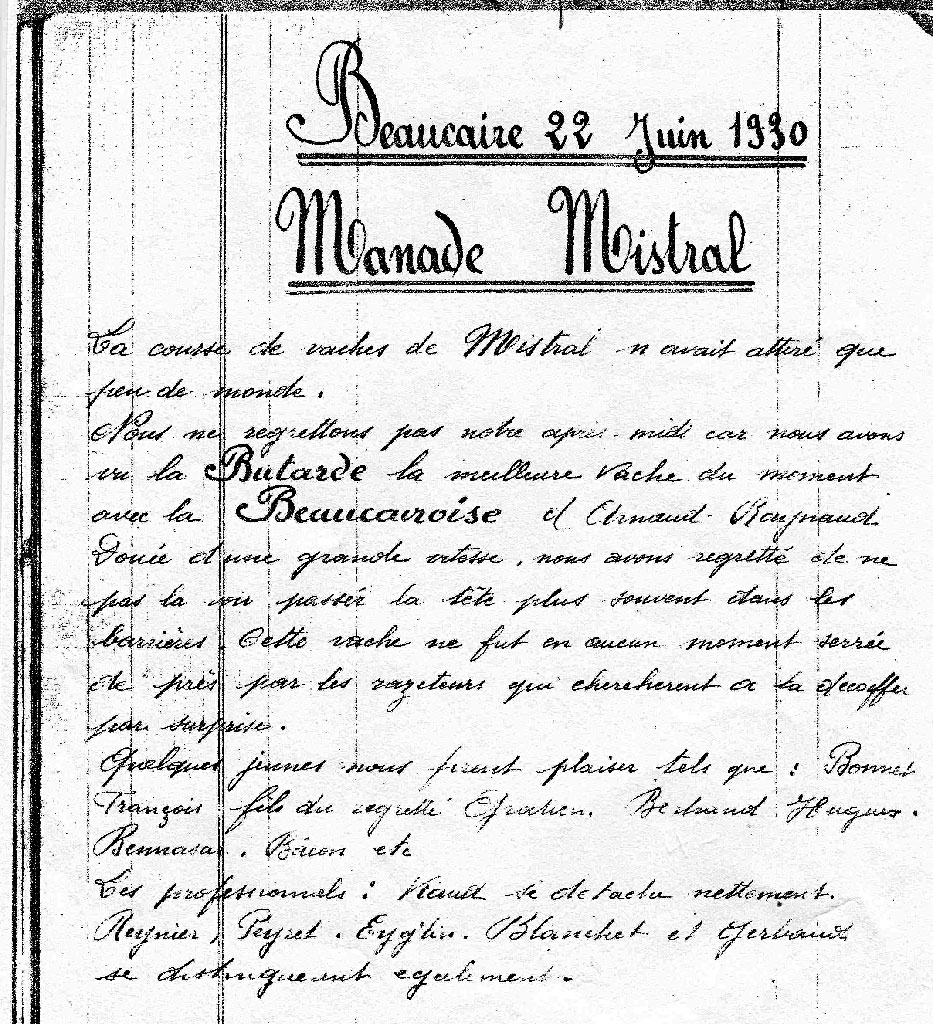 Beaucaire 22 Juin 1930
Manade Mistral
La course de vaches de Mistral n avait attiré que
peu de monde.
Nous ne regrettons pas notre après-midi car nous avons
vu la Butarde la meilleure vache du moment
avec la Beaucairoise d Arnaud Raynaud
Douée d'une grande vitesse, nous avons regretté de ne
pas la voir passer la tête plus souvent dans les
barrières. Cette vache ne fut en aucun moment serrée
de près par les razeteurs qui cherchèrent à la décoiffer
par surprise.
Quelques jeunes nous firent plaisir tels que : Bonnet
François fils du regretté Gratien. Bertrand Hugues.
Bennasar. Bacon etc
Les professionnels : Réaud se détacha nettement.
Reynier, Peyret. Blanchet et Gerbaud
se distinguèrent également.